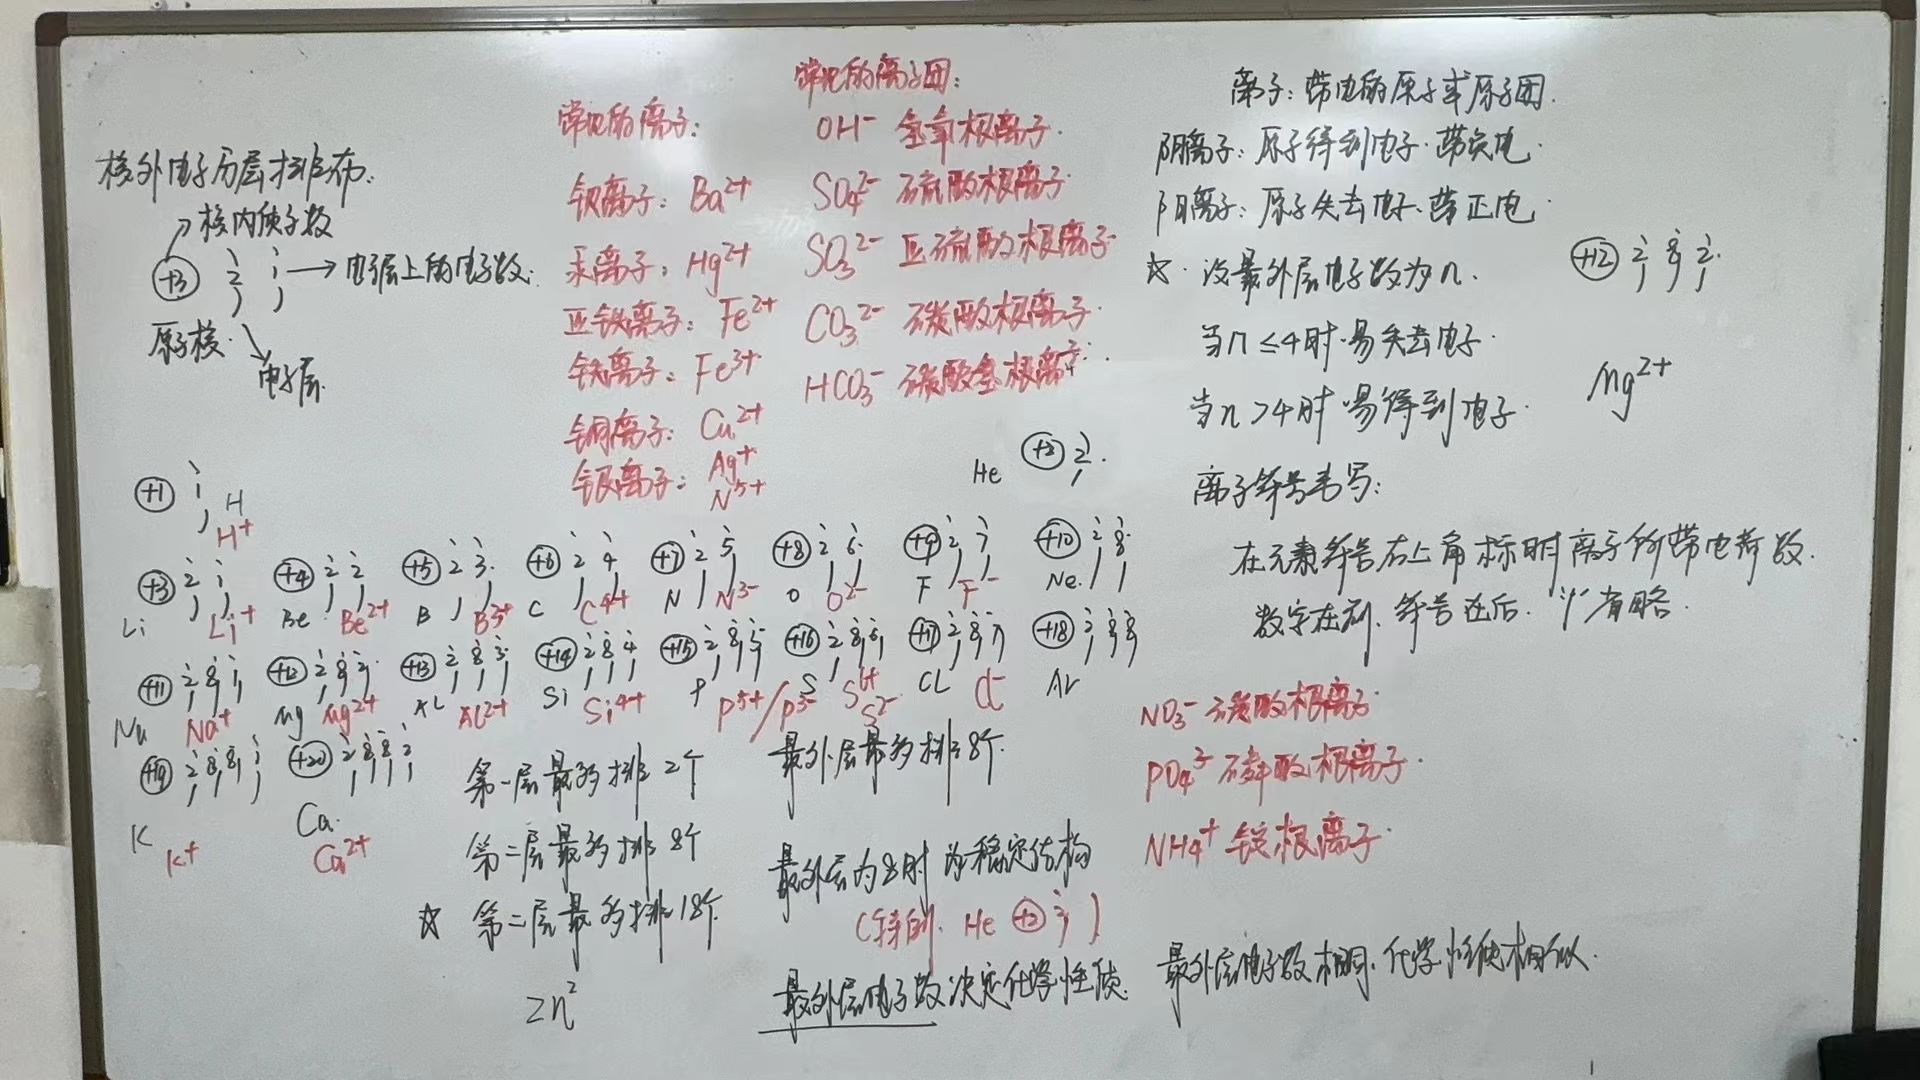 核外电子分层排布:
核内质子数
+3 2 1 → 电子层上的电子数.
原子核.
电子层.
常见的离子:
钡离子: Ba²⁺
汞离子: Hg²⁺
亚铁离子: Fe²⁺
铁离子: Fe³⁺
铜离子: Cu²⁺
银离子: Ag⁺
N⁵⁺
常见的离子团:
OH⁻ 氢氧根离子.
SO₄²⁻ 硫酸根离子
SO₃²⁻ 亚硫酸根离子
CO₃²⁻ 碳酸根离子.
HCO₃⁻ 碳酸氢根离子.
离子: 带电的原子或原子团.
阴离子: 原子得到电子.带负电.
阳离子: 原子失去电子、带正电.
☆. 设最外层电子数为n.
当n≤4时.易失去电子.
当n>4时.易得到电子.
+12 2 8 2
Mg²⁺
离子符号书写:
在元素符号右上角标明离子所带电荷数.
数字在前、符号在后. "1"省略.
+1 1 H
H⁺
He +2 2
+3 2 1 +4 2 2 +5 2 3 +6 2 4 +7 2 5 +8 2 6 +9 2 7 +10 2 8
Li Li⁺ Be Be²⁺ B B³⁺ C C⁴⁺ N N³⁻ O O²⁻ F F⁻ Ne
+11 2 8 1 +12 2 8 2 +13 2 8 3 +14 2 8 4 +15 2 8 5 +16 2 8 6 +17 2 8 7 +18 2 8 8
Na Na⁺ Mg Mg²⁺ AL AL²⁺ Si Si⁴⁺ P P⁵⁺/P³⁻ S S⁶⁺ S²⁻ CL Cl⁻ Ar
+19 2 8 8 1 +20 2 8 8 2
K K⁺ Ca Ca²⁺
第一层最多排2个
第二层最多排8个
☆ 第三层最多排18个.
2n²
最外层最多排8个.
最外层为8时为稳定结构
(特例. He +2 2)
最外层电子数决定化学性质.
最外层电子数相同.化学性质相似.
NO₃⁻ 碳酸根离子
PO₄³ 磷酸根离子.
NH₄⁺ 铵根离子.